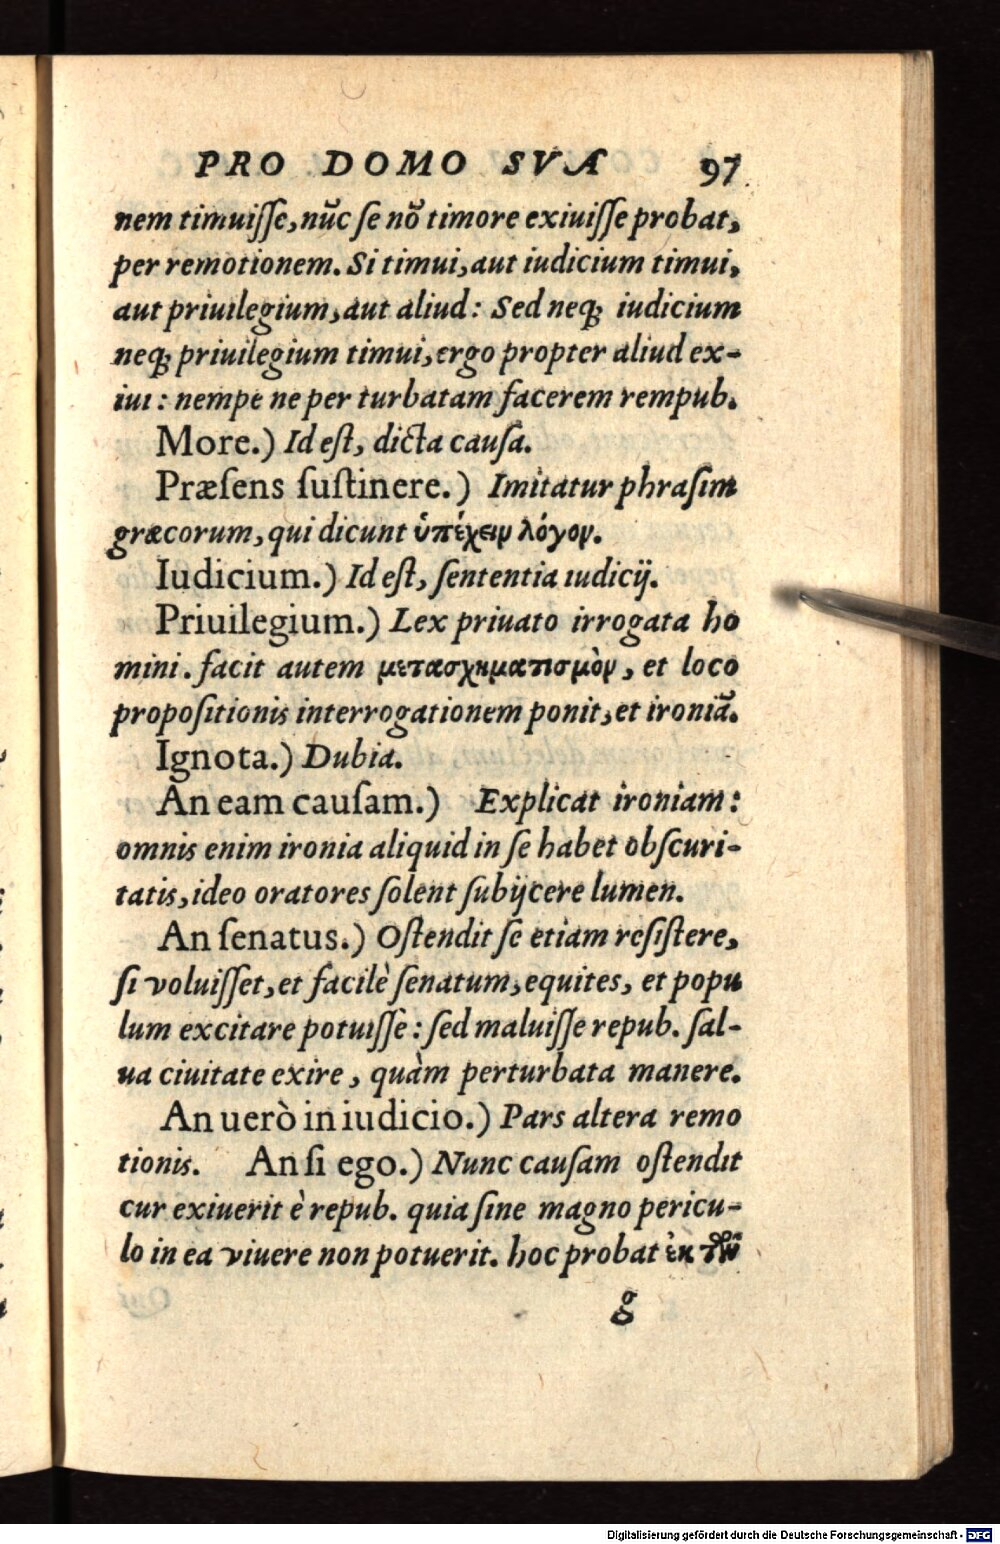 PRO DOMO SVA 97
nem timuiſſe, nūc ſe nō timore exiuiſſe probat,
per remotionem. Si timui, aut iudicium timui,
aut priuilegium, aut aliud: Sed neq; iudicium
neq; priuilegium timui, ergo propter aliud ex-
iui: nempe ne per turbatam facerem rempub.
More.) Id eſt, dicta cauſa.
Præſens ſuſtinere.) Imitatur phraſim
græcorum, qui dicunt ὑπέχειν λόγον.
Iudicium.) Id eſt, ſententia iudicij.
Priuilegium.) Lex priuato irrogata ho
mini. facit autem μετασχηματισμὸν, et loco
propoſitionis interrogationem ponit, et ironiā.
Ignota.) Dubia.
An eam cauſam.) Explicat ironiam:
omnis enim ironia aliquid in ſe habet obſcuri-
tatis, ideo oratores ſolent ſubijcere lumen.
An ſenatus.) Oſtendit ſe etiam reſiſtere,
ſi voluiſſet, et facilè ſenatum, equites, et popu
lum excitare potuiſſe: ſed maluiſſe repub. ſal-
ua ciuitate exire, quàm perturbata manere.
An uerò in iudicio.) Pars altera remo
tionis. An ſi ego.) Nunc cauſam oſtendit
cur exiuerit è repub. quia ſine magno pericu-
lo in ea viuere non potuerit. hoc probat ἐκ τῶν
g
Digitalisierung gefördert durch die Deutsche Forschungsgemeinschaft - DFG